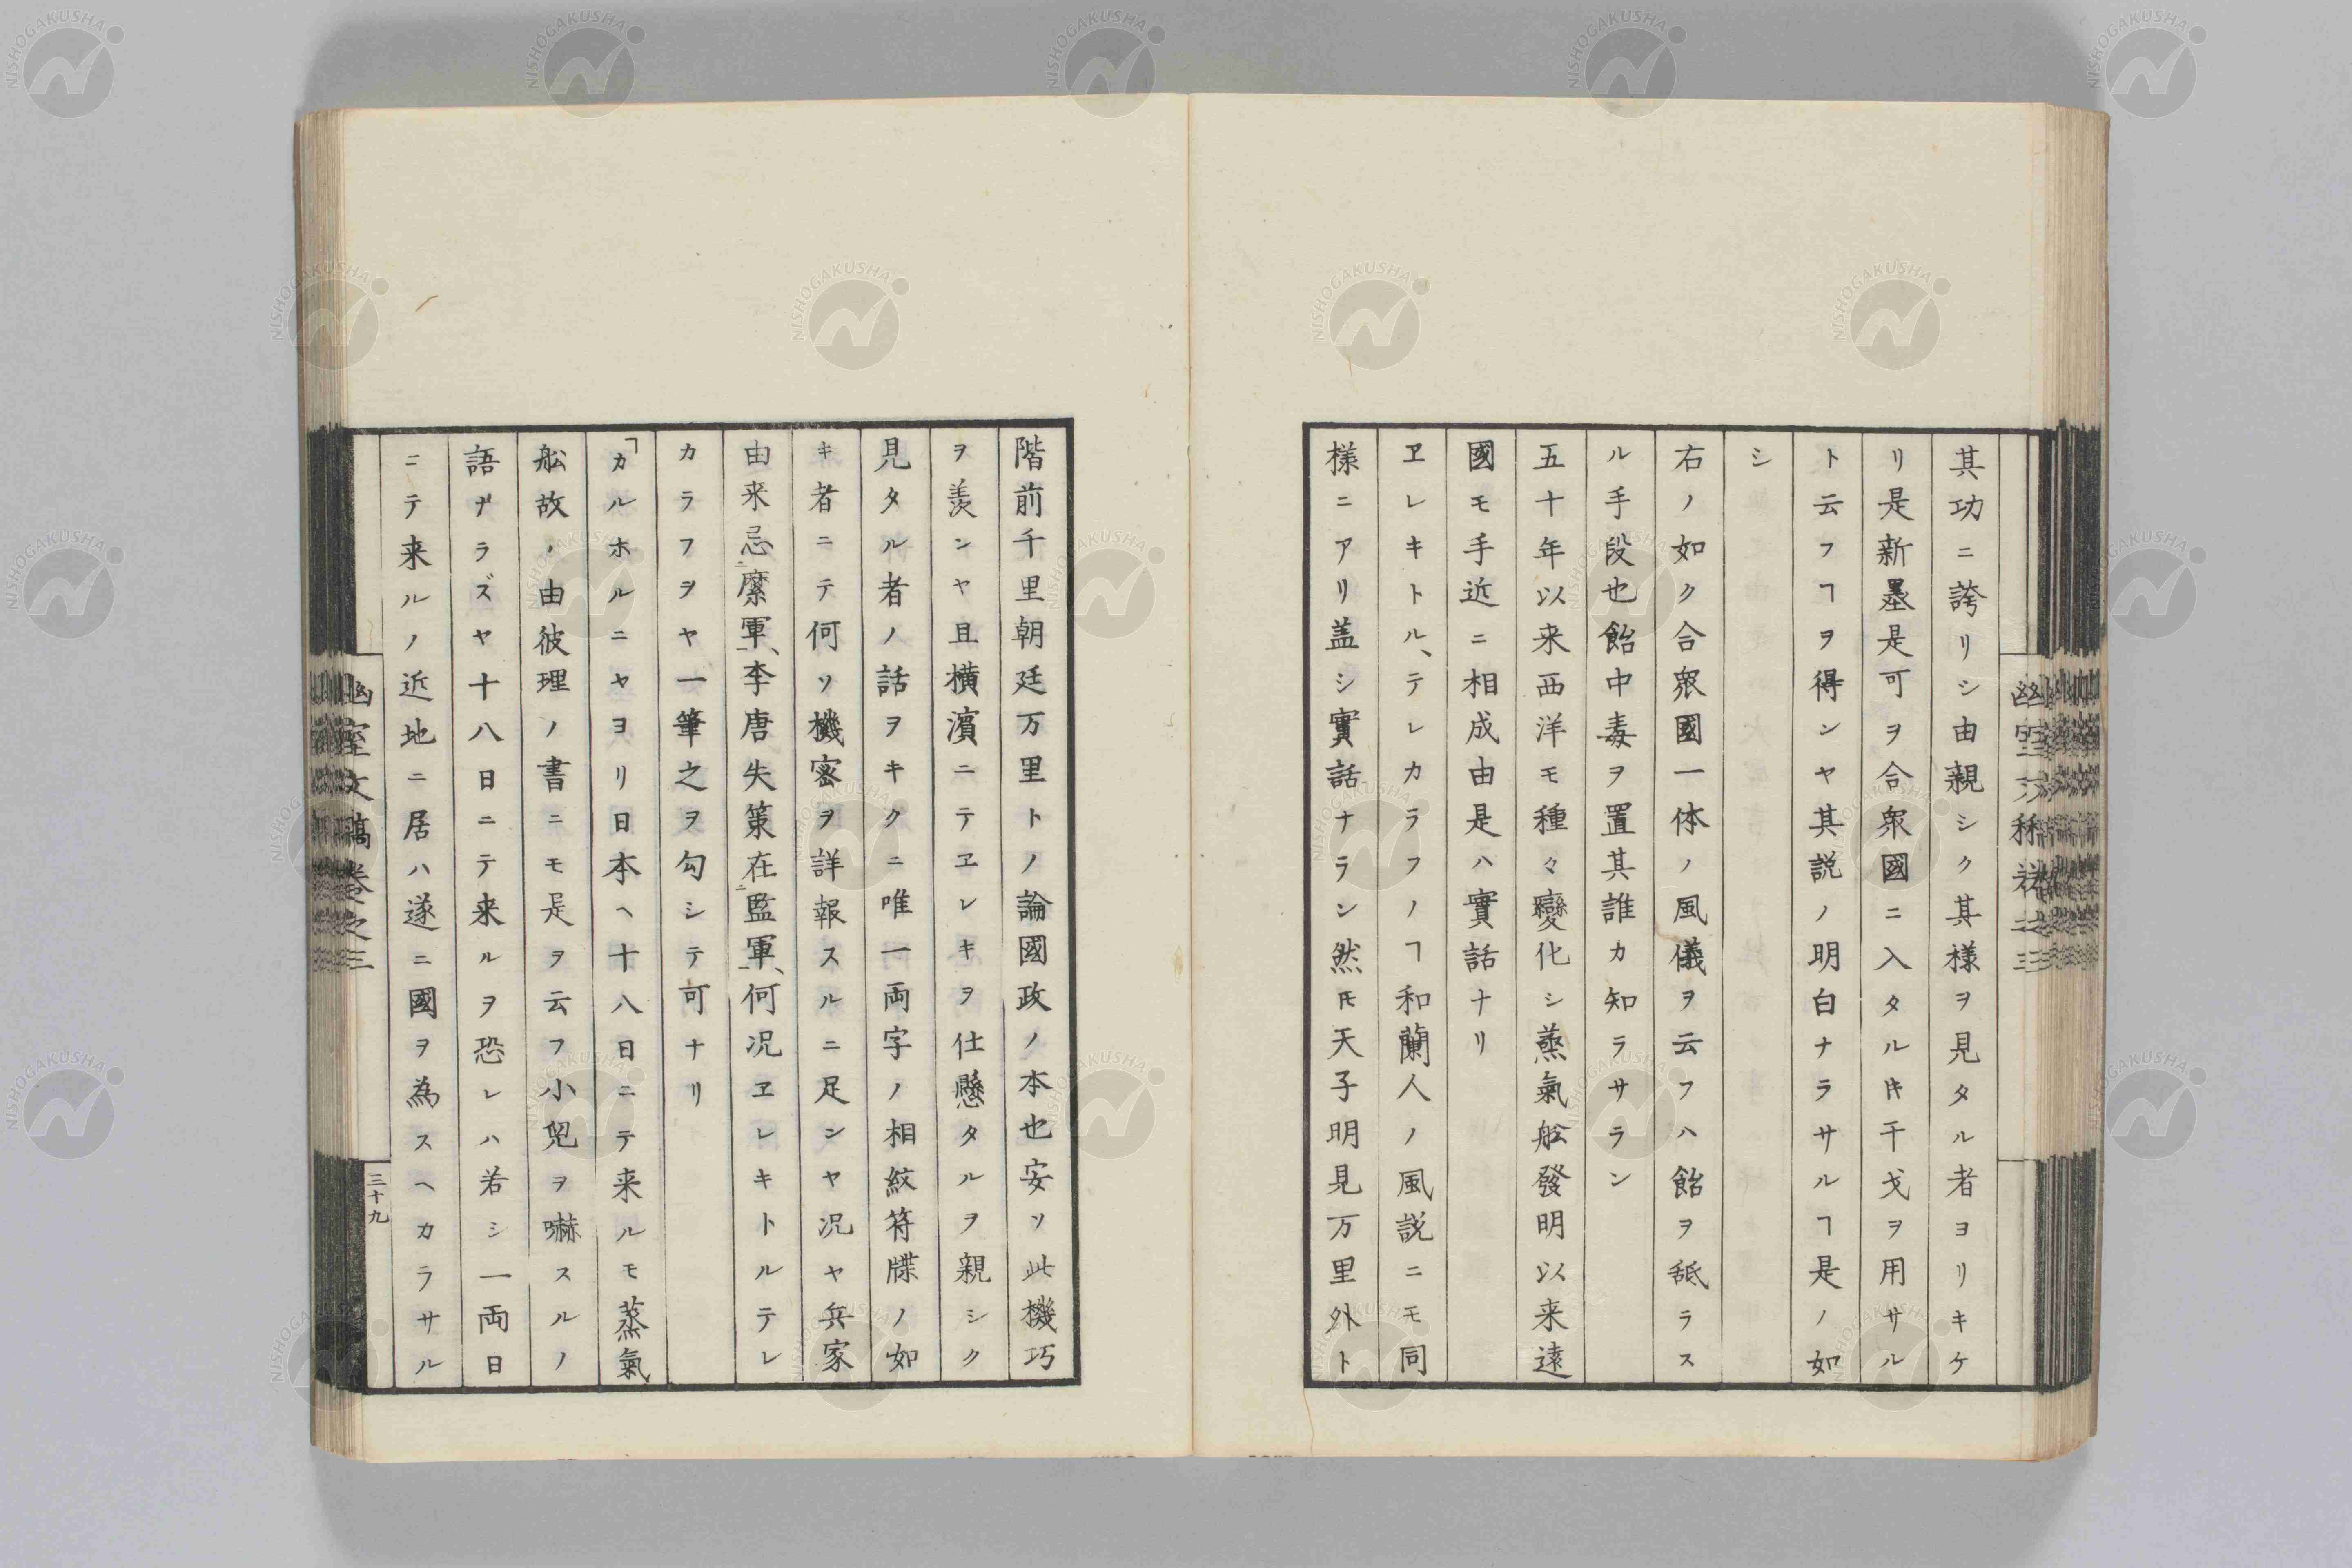 其功ニ誇リシ由親シク其様ヲ見タル者ヨリキケ
リ是新墨是可ヲ合衆國ニ入タルキ干戈ヲ用サル
ト云フヿヲ得ンヤ其説ノ明白ナラサルヿ是ノ如
シ
右ノ如ク合衆國一体ノ風儀ヲ云フハ飴ヲ舐ラス
ル手段也飴中毒ヲ置其誰カ知ラサラン
五十年以来西洋モ種々變化シ蒸氣舩發明以来遠
國モ手近ニ相成由是ハ實話ナリ
ヱレキトル、テレカラフノヿ和蘭人ノ風説ニモ同
様ニアリ盖シ實話ナラン然𪜈天子明見万里外ト
階前千里朝廷万里トノ論國政ノ本也安ソ此機巧
ヲ羨ンヤ且横濱ニテヱレキヲ仕懸タルヲ親シク
見タル者ノ話ヲキクニ唯一両字ノ相紋符牒ノ如
キ者ニテ何ソ機密ヲ詳報スルニ足ンヤ况ヤ兵家
由来忌縻軍、李唐失策在監軍、何况ヱレキトルテレ
カラフヲヤ一筆之ヲ勾シテ可ナリ
「カルホルニヤヨリ日本ヘ十八日ニテ来ルモ蒸氣
舩故ノ由彼理ノ書ニモ是ヲ云フ小兒ヲ嚇スルノ
語ナラズヤ十八日ニテ来ルヲ恐レハ若シ一両日
ニテ来ルノ近地ニ居ハ遂ニ國ヲ為スヘカラサル
幽室文稿巻之三
三十九
NISHOGAKUSHA